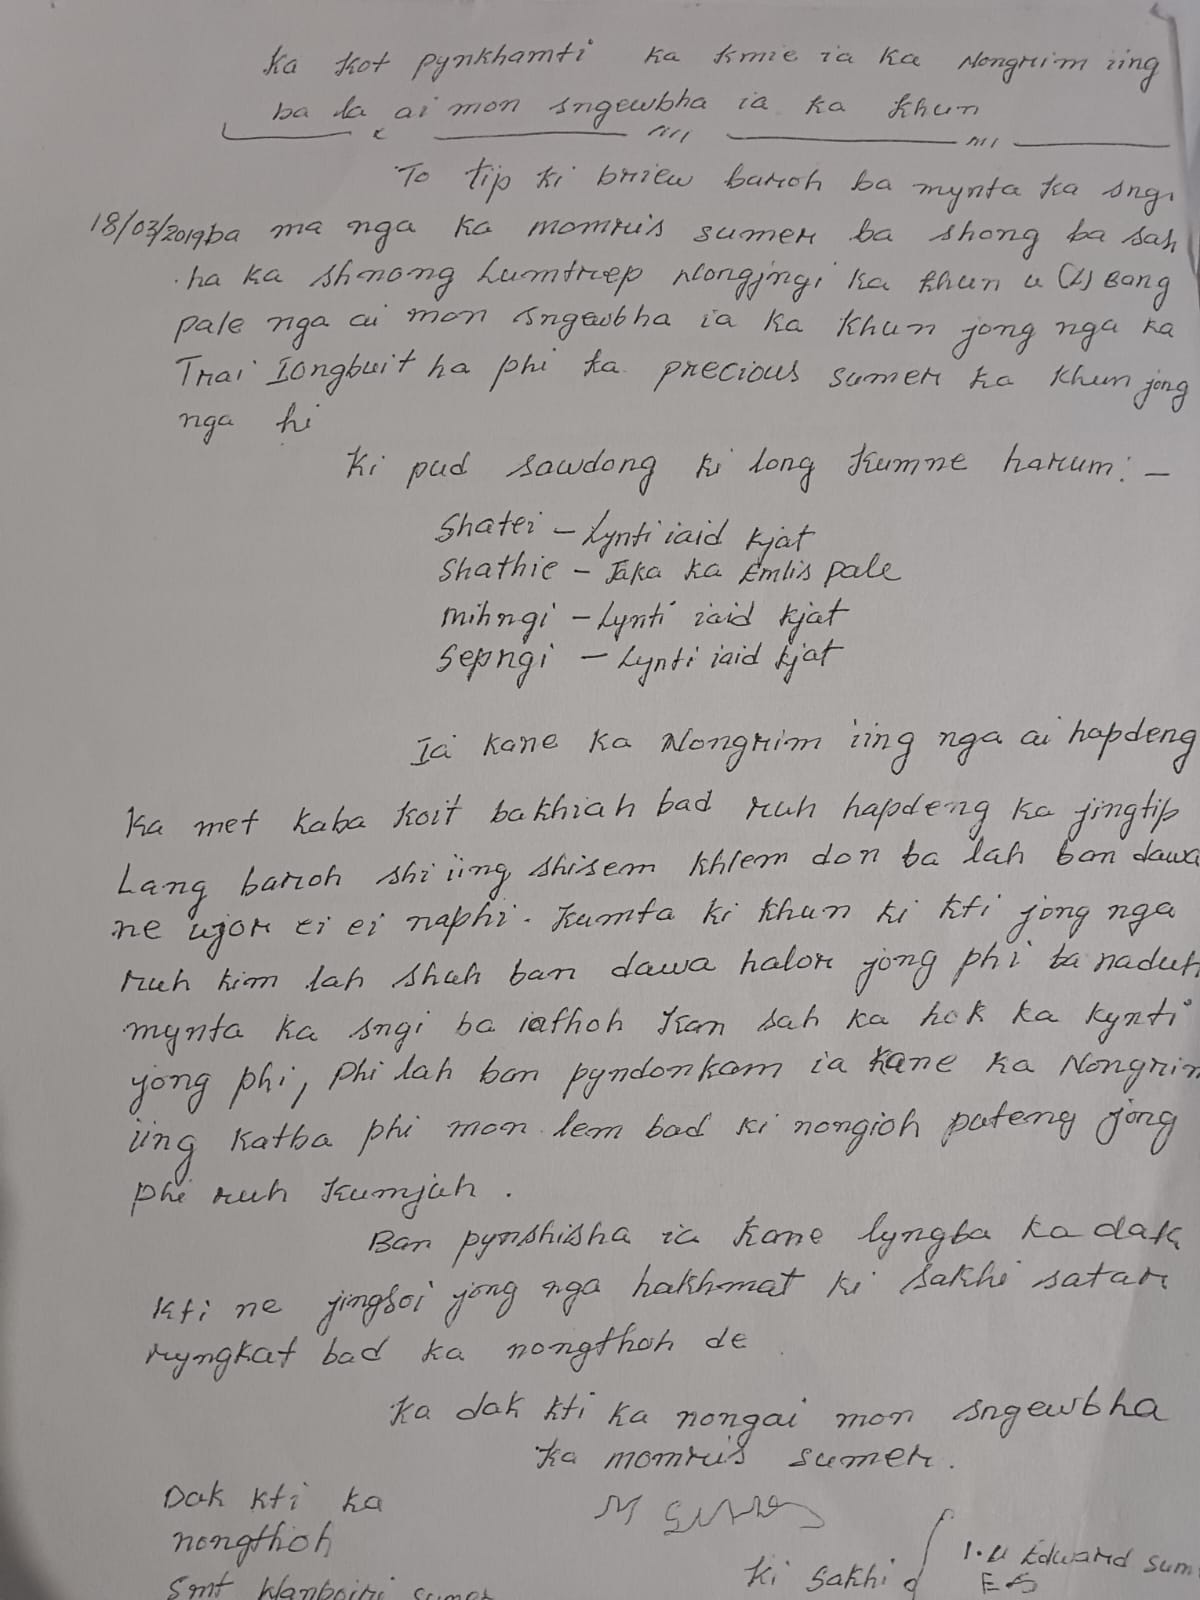 ka kot pynkhamti ka kmie ia ka Nongrim iing
ba la ai mon sngewbha ia ka khun
To tip ki briew baroh ba mynta ka sngi
18/03/2019 ba ma nga ka momris sumer ba shong ba sah
ha ka shnong Lumtrep Nongjngi ka khun u (L) Bang
pale nga ai mon sngewbha ia ka khun jong nga ka
Trai Iongbuit ha phi ka precious sumer ka khun jong
nga hi
Ki pud sawdong ki long kumne harum: -
Shatei - Lynti iaid kjat
Shathie - Jaka ka Emlis pale
mihngi - Lynti iaid kjat
Sepngi - Lynti iaid kjat
Ia kane ka Nongrim iing nga ai hapdeng
ka met kaba koit bakhiah bad ruh hapdeng ka jingtip
Lang baroh shi iing shisem khlem don ba lah ban dawa
ne ujor ei ei naphi. Kumta ki khun ki kti jong nga
ruh kim lah shah ban dawa halor jong phi ba naduh
mynta ka sngi ba iathoh kan sah ka hok ka kynti
jong phi, phi lah ban pyndonkam ia kane ka Nongrim
iing katba phi mon lem bad ki nongioh pateng jong
phi ruh kumjuh.
Ban pynshisha ia kane lyngba ka dak
kti ne jingsoi jong nga hakhmat ki sakhi satar
ryngkat bad ka nongthoh de
ka dak kti ka nongai mon sngewbha
ka momris sumer.
Dak kti ka
nongthoh
Smt Wanboiri sumer
M Sumer
Ki sakhi
1. U Edward sum